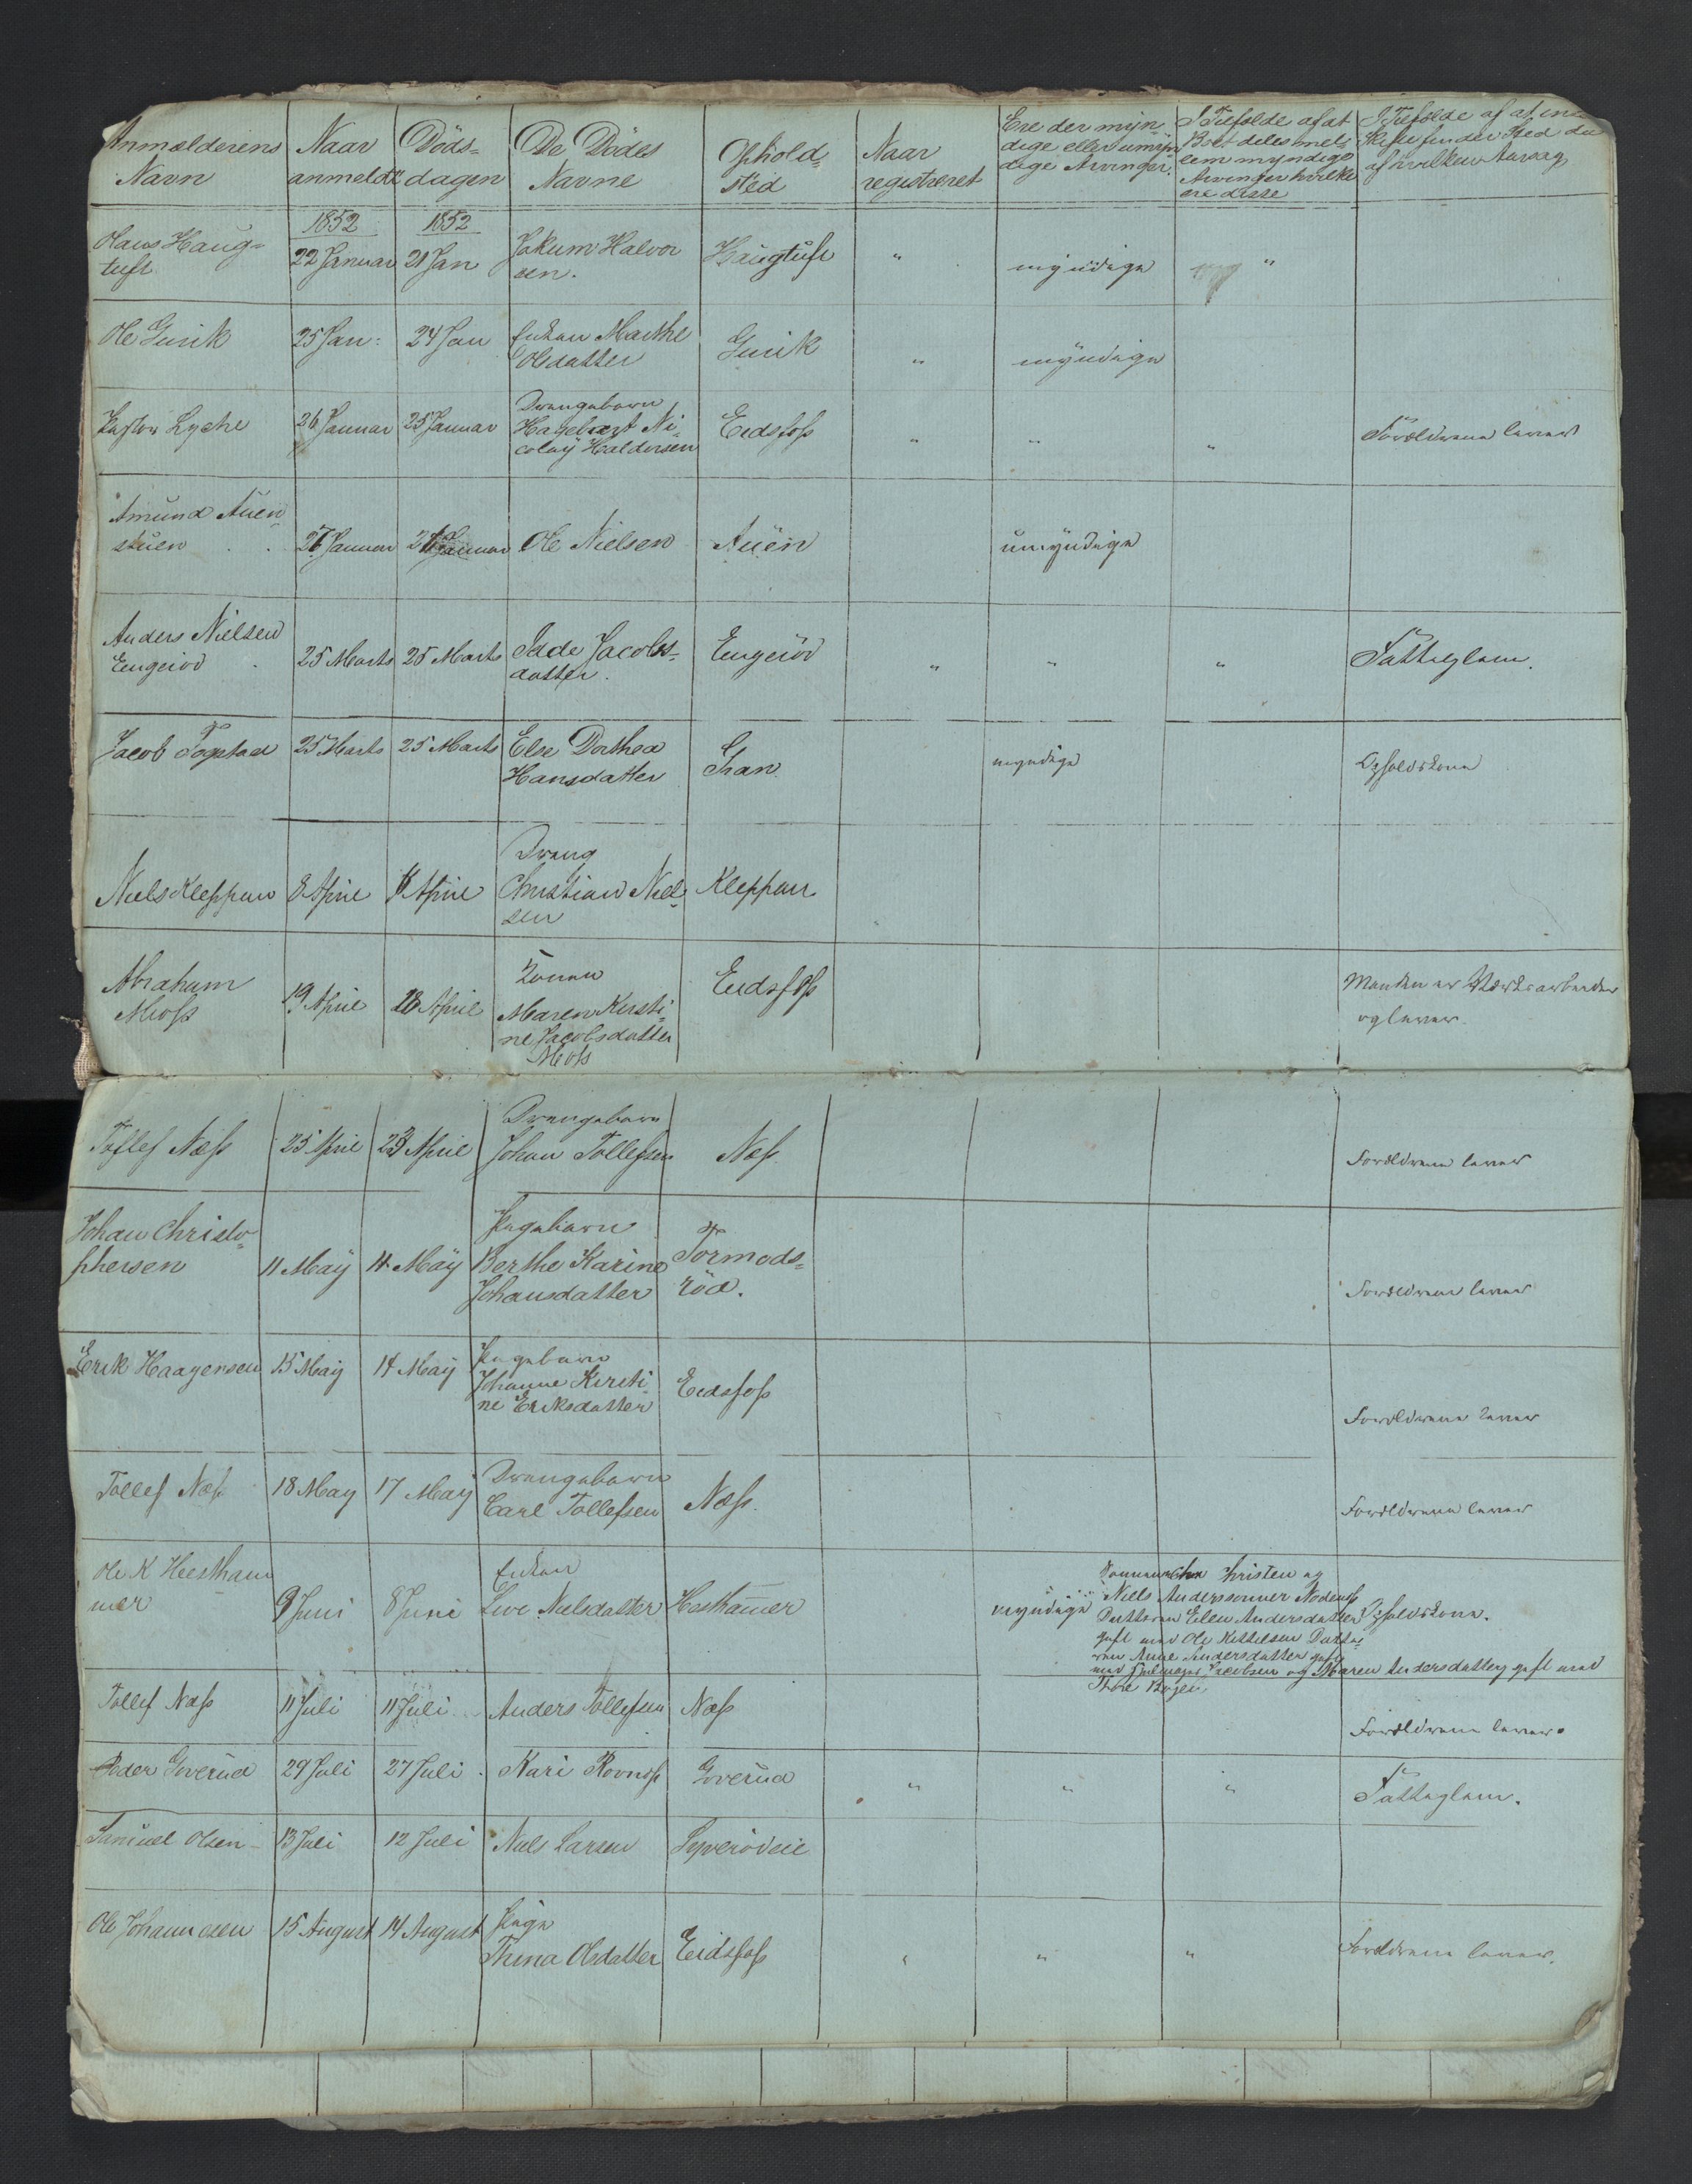 Anmelderens Navn
Naar anmeldt
Döds-dagen
De Dödes Navne
Ophold-sted
Naar registreret
Ere der myn-
dige eller umyn-
dige Arvinger.
I Tilfælde af at
Boet deles mel-
lem myndige
Arvinger hvilke
ere disse
I Tilfælde af at
Skifte finder Sted da
af hvilken Aarsag
1852 1852
Hans Haug-
tuft 22 Januar 21 Jan Jokum Halvor
sen. Haugtuft " myndige "
Ole Gusik 25 Jan: 24 Jan Enken Marthe
Olsdatter Gusik " myndige
Pastor Lyche 26 Januar 25 Januar Drengebarn
Hagebart Ni-
colay Haldorsen Eidsfoss " " " Forældrene lever
Amund Auen
stuen 27 Januar Januar Ole Nielsen Auen umyndige
Anders Nielsen
Engeröd 25 Marts 25 Marts Jacobs-
datter. Engeröd " " " Fattiglem.
Jacob Fogstad 25 Marts 25 Marts Else Dorthea
Hansdatter Gran myndige Opholdskone
Niels Kleppan 8 April April Dreng
Christian Niel-
sen Kleppan
Abraham
Moss 19 April 18 April Konen
Maren Kirsti-
ne Jacobsdatter
Moss Eidsfoss Manden er Værksarbeider
og lever.
Tollef Næss 25 April 23 April Drengebarn
Johan Tollefsen Næss Forældrene lever
Johan Christo-
phersen 11 May 11 May Pigebarn
Berthe Karine
Johansdatter Tormods-
röd. Forældrene lever
Erik Haagensen 15 May 14 May Pigebarn
Johanne Kirsti-
ne Eriksdatter Eidsfoss Forældrene lever
Tollef Næss 18 May 17 May Drengebarn
Carl Tollefsen Næss. Forældrene lever
Ole K Hestham
mer 9 Juni 8 Juni Enken
Live Nielsdatter Hesthamer myndige Christen og
Niels Anderssönner
Datteren Ellen Andersdatter Opholdskone.
gift med Ole Kittelsen Datte-
ren Anne Andersdatter gift
med Jacobsen og Maren Andersdatter gift med
Thore
Tollef Næss 11 Juli 11 Juli Anders Tollefsen Næss Forældrene lever.
Peder Goverud 29 Juli 27 Juli Kari Goverud " " " Fattiglem.
Samuel Olsen 13 Juli 12 Juli Niels Larsen
Ole Johannesen 15 August 14 August Pige
Thina Olsdatter Eidsfoss " " " Forældrene lever.